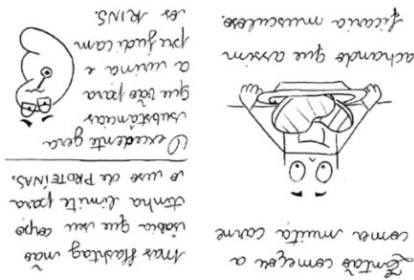 Então começou a
comer muita carne
achando que assim
ficaria musculoso.
mas Hashtag não
sabia que seu corpo
tinha limite para
o uso de PROTEÍNAS.
O excedente gera
substâncias
que vão para
a urina e
prejudicam
os RINS.